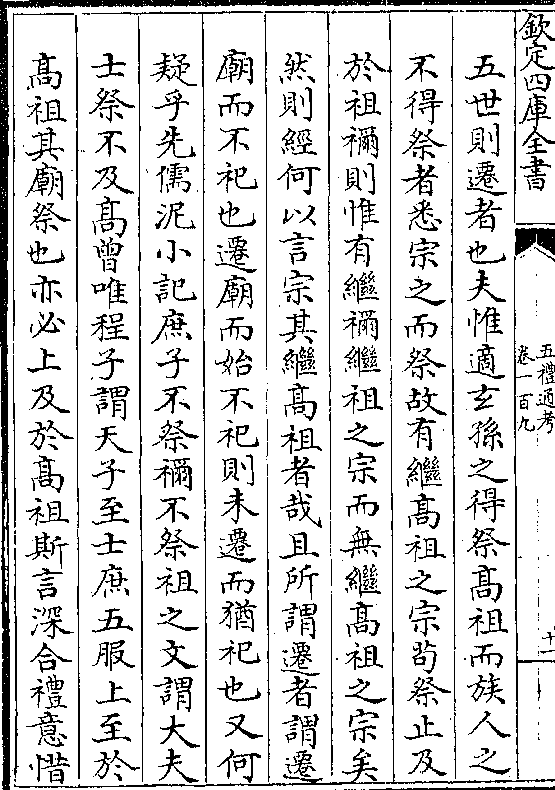 欽定四庫全書
五禮通考
卷一百九
十一
五世則遷者也夫惟適玄孫之得祭髙祖而族人之
不得祭者悉宗之而祭故有繼髙祖之宗茍祭止及
於祖禰則惟有繼禰繼祖之宗而無繼髙祖之宗矣
然則經何以言宗其繼髙祖者哉且所謂遷者謂遷
廟而不祀也遷廟而始不祀則未遷而猶祀也又何
疑乎先儒泥小記庶子不祭禰不祭祖之文謂大夫
士祭不及髙曾唯程子謂天子至士庶五服上至於
髙祖其廟祭也亦必上及於髙祖斯言深合禮意惜